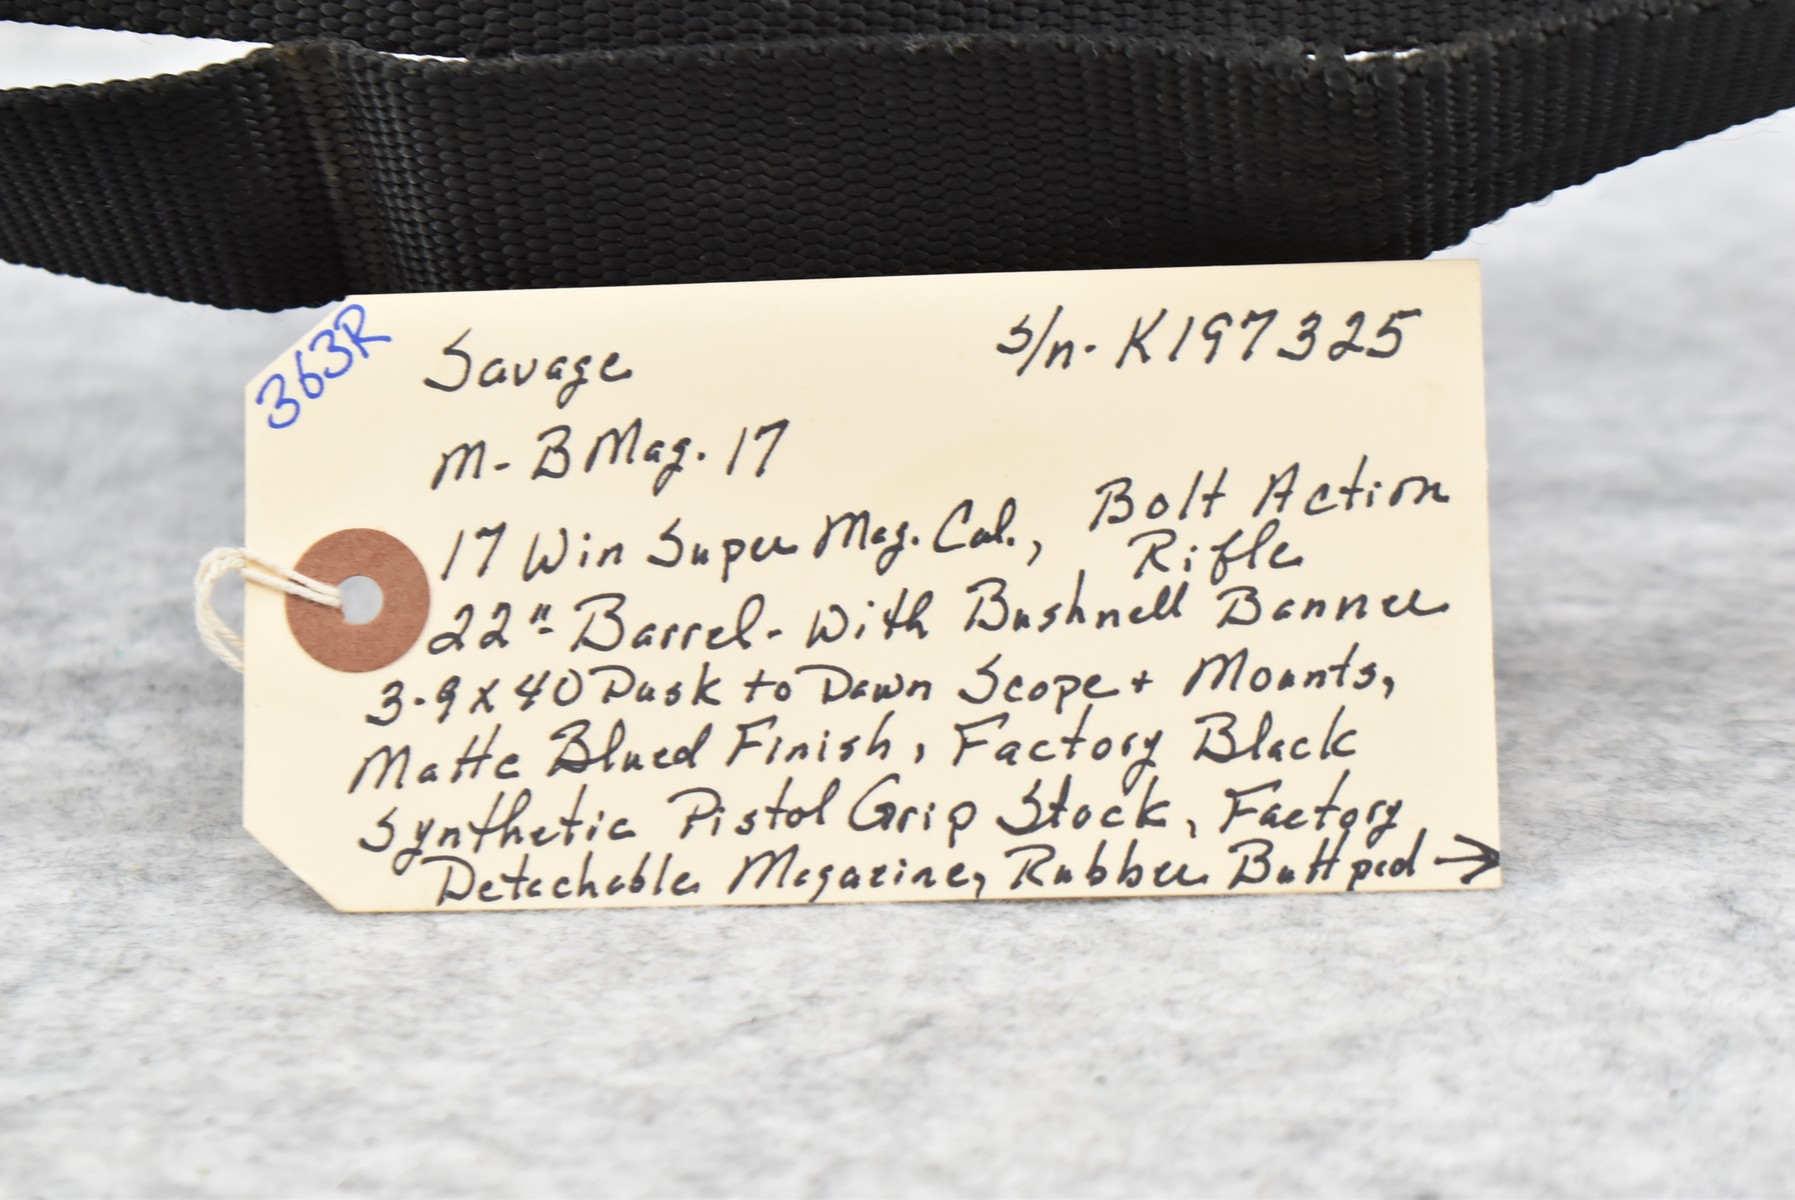 363R
Savage s/n. K197325
M- B Mag. 17
17 Win Super Mag. Cal., Bolt Action
Rifle
22"- Barrel- With Bushnell Banner
3-9x40 Dusk to Dawn Scope + Mounts,
Matte Blued Finish, Factory Black
Synthetic Pistol Grip Stock, Factory
Detachable Magazine, Rubber Buttpad →